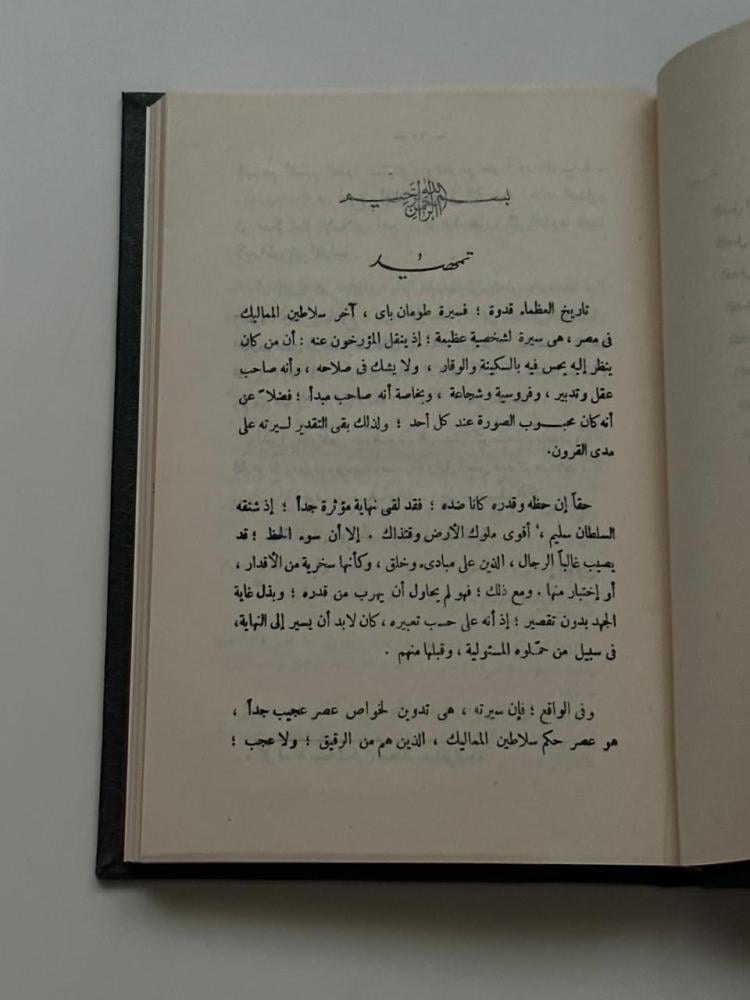 بسم الله الرحمن الرحيم
تمهيد
تاريخ العظماء قدوة ؛ فسيرة طومان باى ، آخر سلاطين المماليك
فى مصر ، هى سيرة لشخصية عظيمة ؛ إذ ينقل المؤرخون عنه : أن من كان
ينظر إليه يحس فيه بالسكينة والوقار ، ولا يشك فى صلاحه ، وأنه صاحب
عقل وتدبير ، وفروسية وشجاعة ، وبخاصة أنه صاحب مبدأ ؛ فضلاً عن
أنه كان محبوب الصورة عند كل أحد ؛ ولذلك بقى التقدير لسيرته على
مدى القرون.
حقاً إن حظه وقدره كانا ضده ؛ فقد لقى نهاية مؤثرة جداً ؛ إذ شنقه
السلطان سليم ، أقوى ملوك الأرض وقتذاك . إلا أن سوء الحظ ؛ قد
يصيب غالباً الرجال ، الذين على مبادىء وخلق ، وكأنها سخرية من الأقدار ،
أو إختبار منها . ومع ذلك ؛ فهو لم يحاول أن يهرب من قدره ؛ وبذل غاية
الجهد بدون تقصير ؛ إذ أنه على حسب تعبيره ، كان لابد أن يسير إلى النهاية،
فى سبيل من حمّلوه المسئولية ، وقبلها منهم .
وفى الواقع ؛ فإن سيرته ، هى تدوين لخواص عصر عجيب جداً ،
هو عصر حكم سلاطين المماليك ، الذين هم من الرقيق ؛ ولا عجب ؛